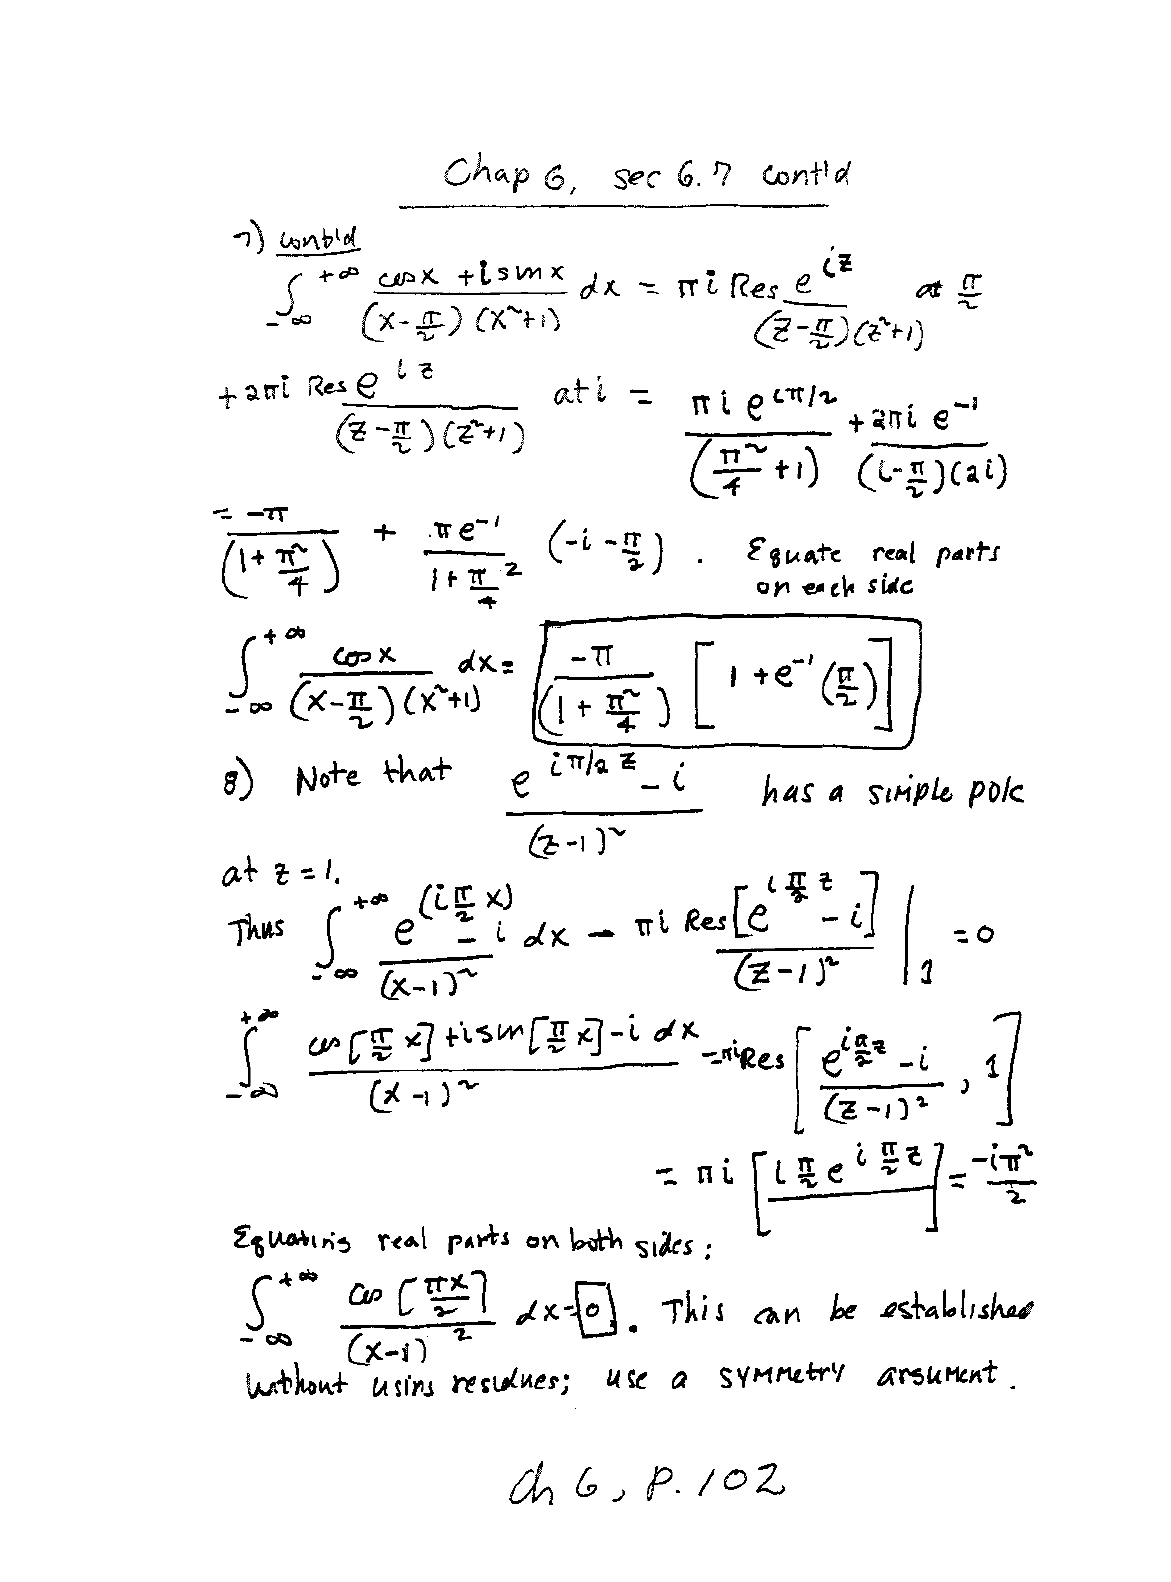 Chap 6, sec 6.7 cont'd
7) cont'd
∫_{-∞}^{+∞} (cos x + i sin x)/((x-π/2)(x²+1)) dx = πi Res e^{iz}/((z-π/2)(z²+1)) at π/2
+ 2πi Res e^{iz}/((z-π/2)(z²+1)) at i = πi e^{iπ/2}/(π²/4+1) + 2πi e^{-1}/((i-π/2)(2i))
= -π/(1+π²/4) + πe^{-1}/(1+π²/4) (-i-π/2). Equate real parts
on each side
∫_{-∞}^{+∞} cos x/((x-π/2)(x²+1)) dx = -π/(1+π²/4) [1+e^{-1}(π/2)]
8) Note that (e^{iπ/2 z} - i)/(z-1)² has a simple pole
at z=1.
Thus ∫_{-∞}^{+∞} (e^{(iπ/2 x)} - i)/(x-1)² dx - πi Res[e^{iπ/2 z} - i]/(z-1)² |_1 = 0
∫_{-∞}^{+∞} (cos[π/2 x] + i sin[π/2 x] - i dx)/(x-1)² = πi Res[(e^{iπ/2 z} - i)/(z-1)², 1]
= πi [i π/2 e^{iπ/2 z}] = -iπ²/2
Equating real parts on both sides:
∫_{-∞}^{+∞} cos[πx/2]/(x-1)² dx = 0. This can be established
without using residues; use a symmetry argument.
ch 6, p. 102